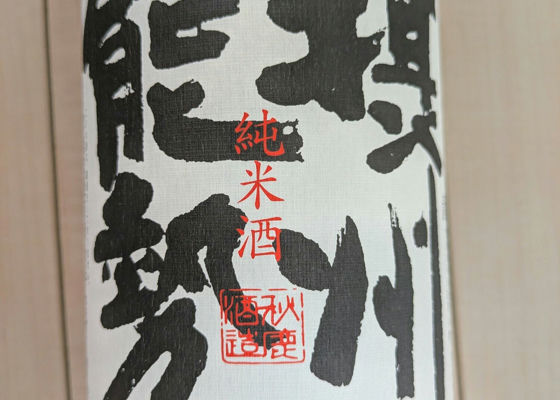 州
能勢
純米酒
秋鹿
酒造